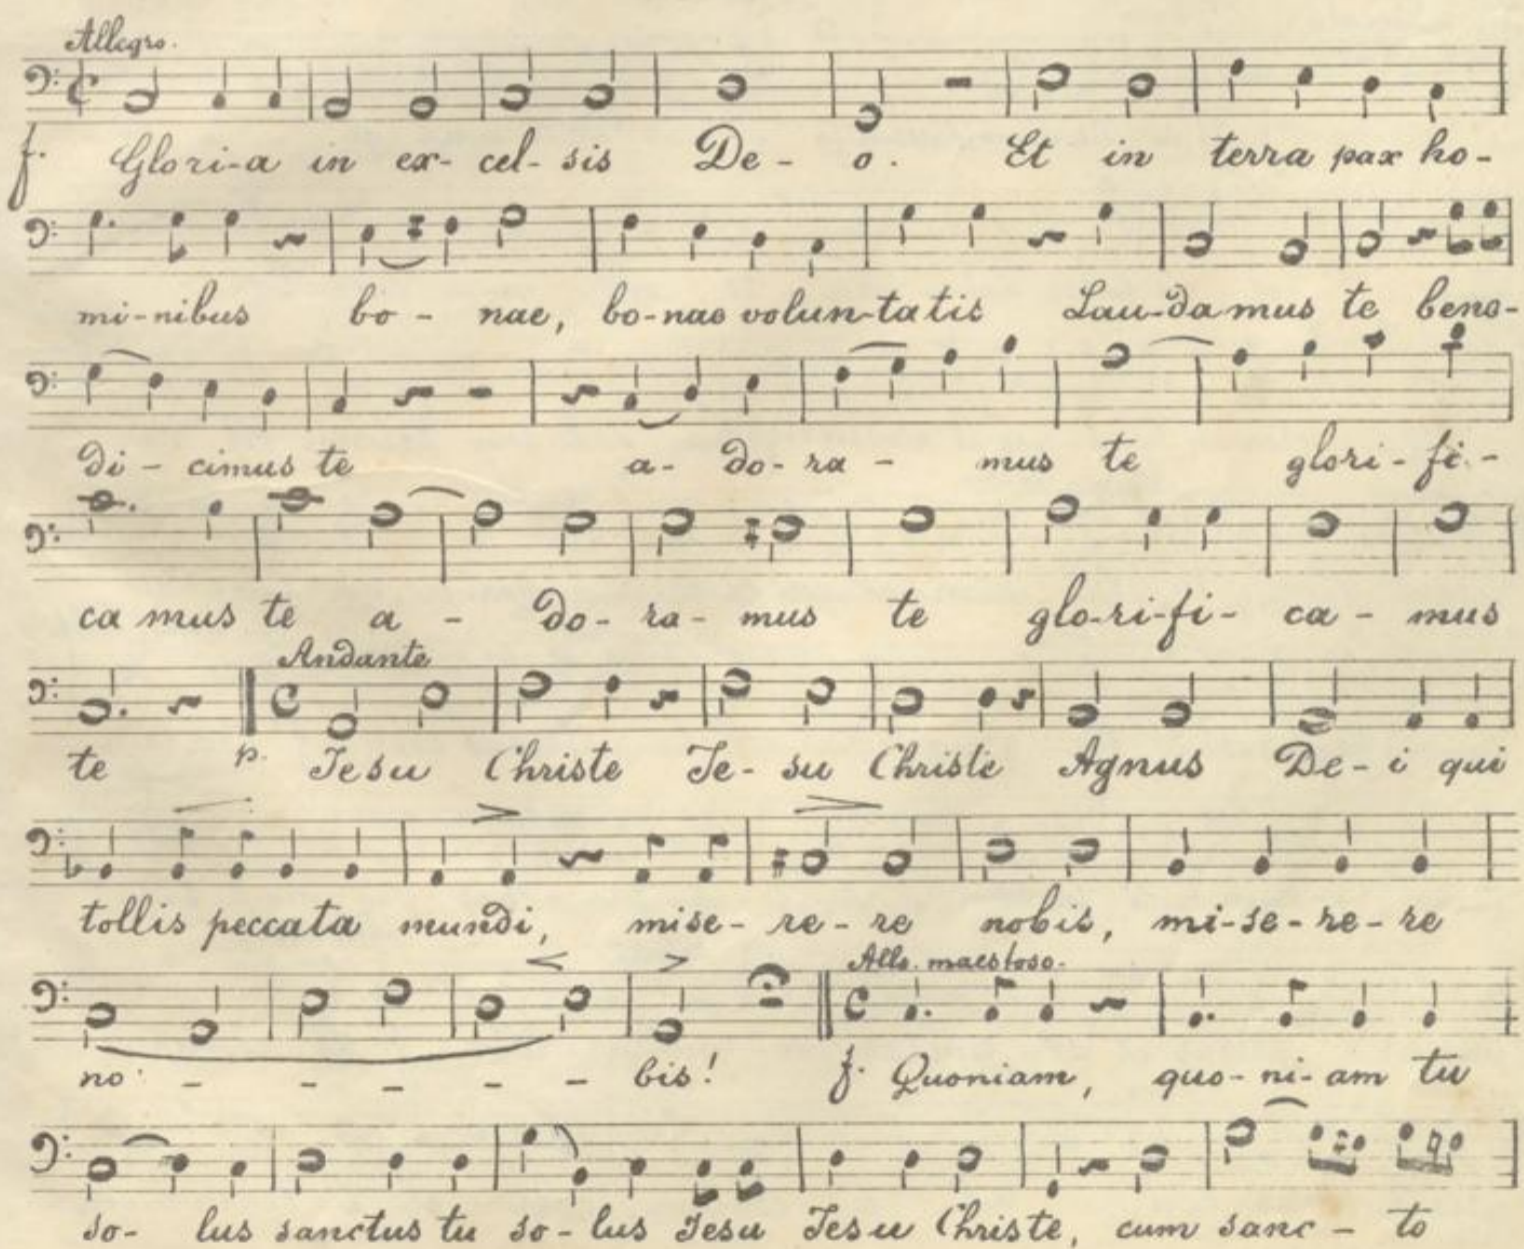 Allegro.
f. Glori-a in ex- cel- sis De- o. Et in terra pax ho-
mi-nibus bo- nae, bo-nae volun-tatis Lau-damus te bene-
di- cimus te a- do-ra- mus te glori-fi-
ca mus te a- do- ra- mus te glo-ri-fi- ca- mus
Andante
te p. Jesu Christe Je- su Christe Agnus De- i qui
tollis peccata mundi, mise- re- re nobis, mi-se-re-re
Allo. maestoso.
no - - - - - bis! f. Quoniam, quo-ni-am tu
so- lus sanctus tu so-lus Jesu Jesu Christe, cum sanc- to